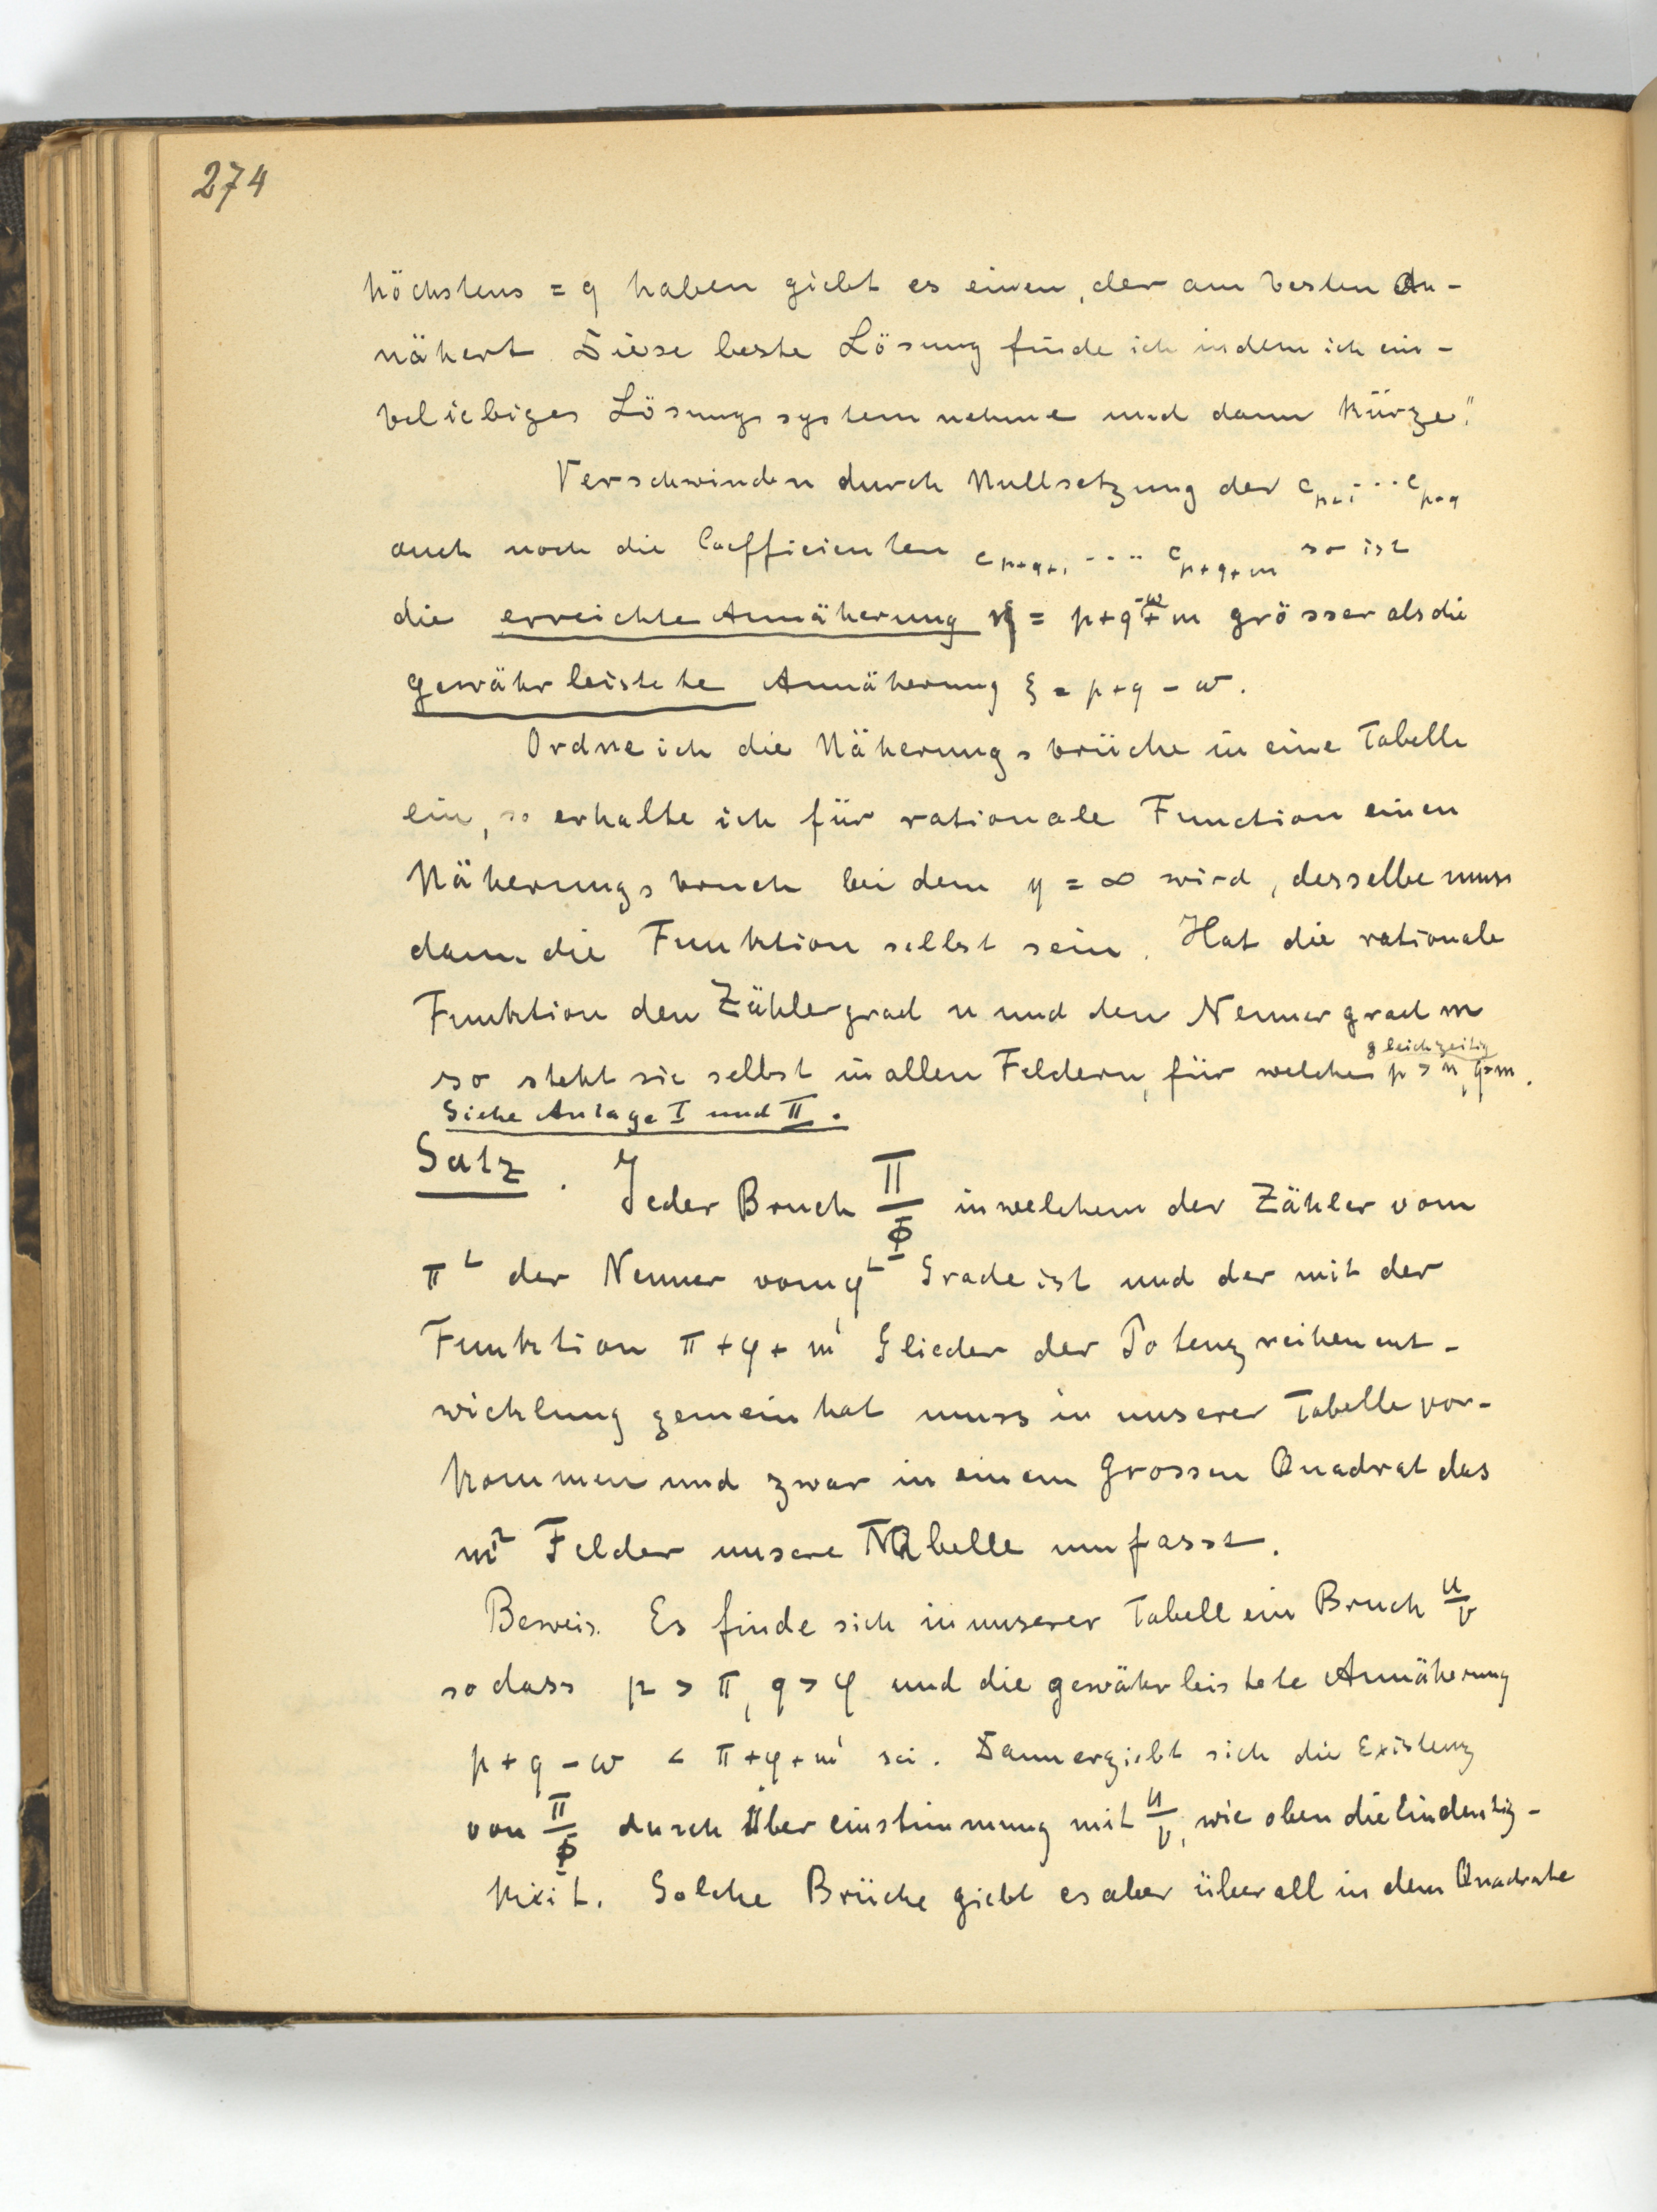 274
höchstens = q haben giebt es einen, der am besten an-
nähert. Diese beste Lösung finde ich indem ich ein-
beliebiges Lösungssystem nehme und dann kürze."
Verschwinden durch Nullsetzung der c_{p+1} ... c_{p+q}
auch noch die Coefficienten c_{p+q+1} .... c_{p+q+m} so ist
die erreichte Annäherung η = p+q-w+m grösser als die
gewährleistete Annäherung ξ = p+q-w.
Ordne ich die Näherungsbrüche in eine Tabelle
ein, so erhalte ich für rationale Function einen
Näherungsbruch bei dem η = ∞ wird, desselbe muss
dann die Funktion selbst sein. Hat die rationale
Funktion den Zählergrad n und den Nennergrad m
gleichzeitig
so steht sie selbst in allen Feldern, für welche p > n, q > m.
Siehe Anlage I und II.
Satz. Jeder Bruch Π/Φ in welchem der Zähler vom
π^t der Nenner vom φ^t Grade ist und der mit der
Funktion π+φ+m' Glieder der Potenzreihenent-
wicklung gemein hat muss in unserer Tabelle vor-
kommen und zwar in einem Grossen Quadrat das
m'² Felder unsere Tabelle umfasst.
Beweis. Es finde sich in unserer Tabell ein Bruch u/v
so dass p > π, q > φ und die gewährleistete Annäherung
p+q-w < π+φ+m' sei. Dann ergiebt sich die Existenz
von Π/Φ durch Übereinstimmung mit u/v, wie oben die Eindeutig-
keit. Solche Brüche giebt es aber überall in dem Quadrate